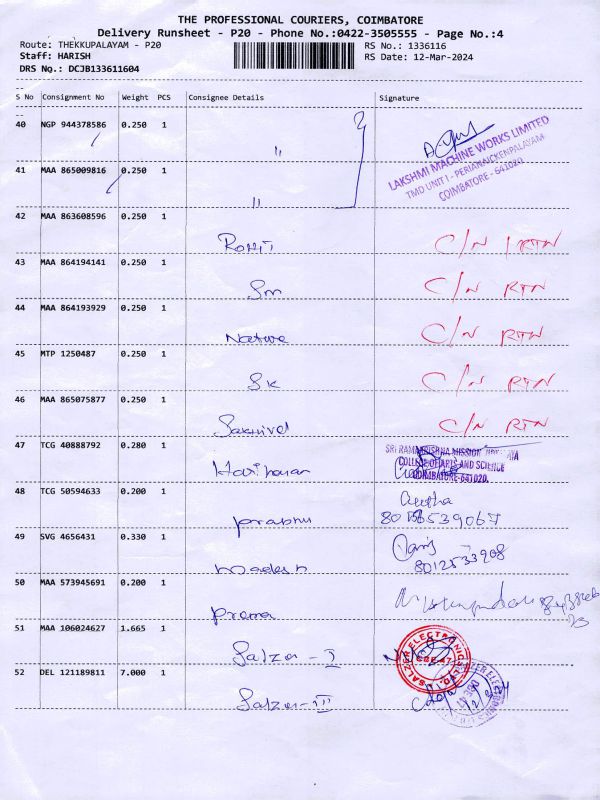 THE PROFESSIONAL COURIERS, COIMBATORE
Delivery Runsheet - P20 - Phone No.:0422-3505555 - Page No.:4
Route: THEKKUPALAYAM - P20 RS No.: 1336116
Staff: HARISH RS Date: 12-Mar-2024
DRS No.: DCJB133611604
S No Consignment No Weight PCS Consignee Details Signature
40 NGP 944378586 0.250 1 "
41 MAA 865009816 0.250 1 "
LAKSHMI MACHINE WORKS LIMITED
TMD UNIT I - PERIANAICKENPALAYAM
COIMBATORE - 641020
42 MAA 863608596 0.250 1
Rohit C/N RTN
43 MAA 864194141 0.250 1
Sm C/N RTN
44 MAA 864193929 0.250 1
Nature C/N RTN
45 MTP 1250487 0.250 1
SK C/N RTN
46 MAA 865075877 0.250 1
Sakhivel C/N RTN
47 TCG 40888792 0.280 1
Hariharan
SRI RAMAKRISHNA MISSION
COLLEGE OF ARTS AND SCIENCE
COIMBATORE-641020.
48 TCG 50594633 0.200 1
Prabhu
49 SVG 4656431 0.330 1
Madesh 8012533908
50 MAA 573945691 0.200 1
Prema
51 MAA 106024627 1.665 1
Salzer - I
SALZER ELECTRONICS LTD.
CBE-47
52 DEL 121189811 7.000 1
Salzer - III